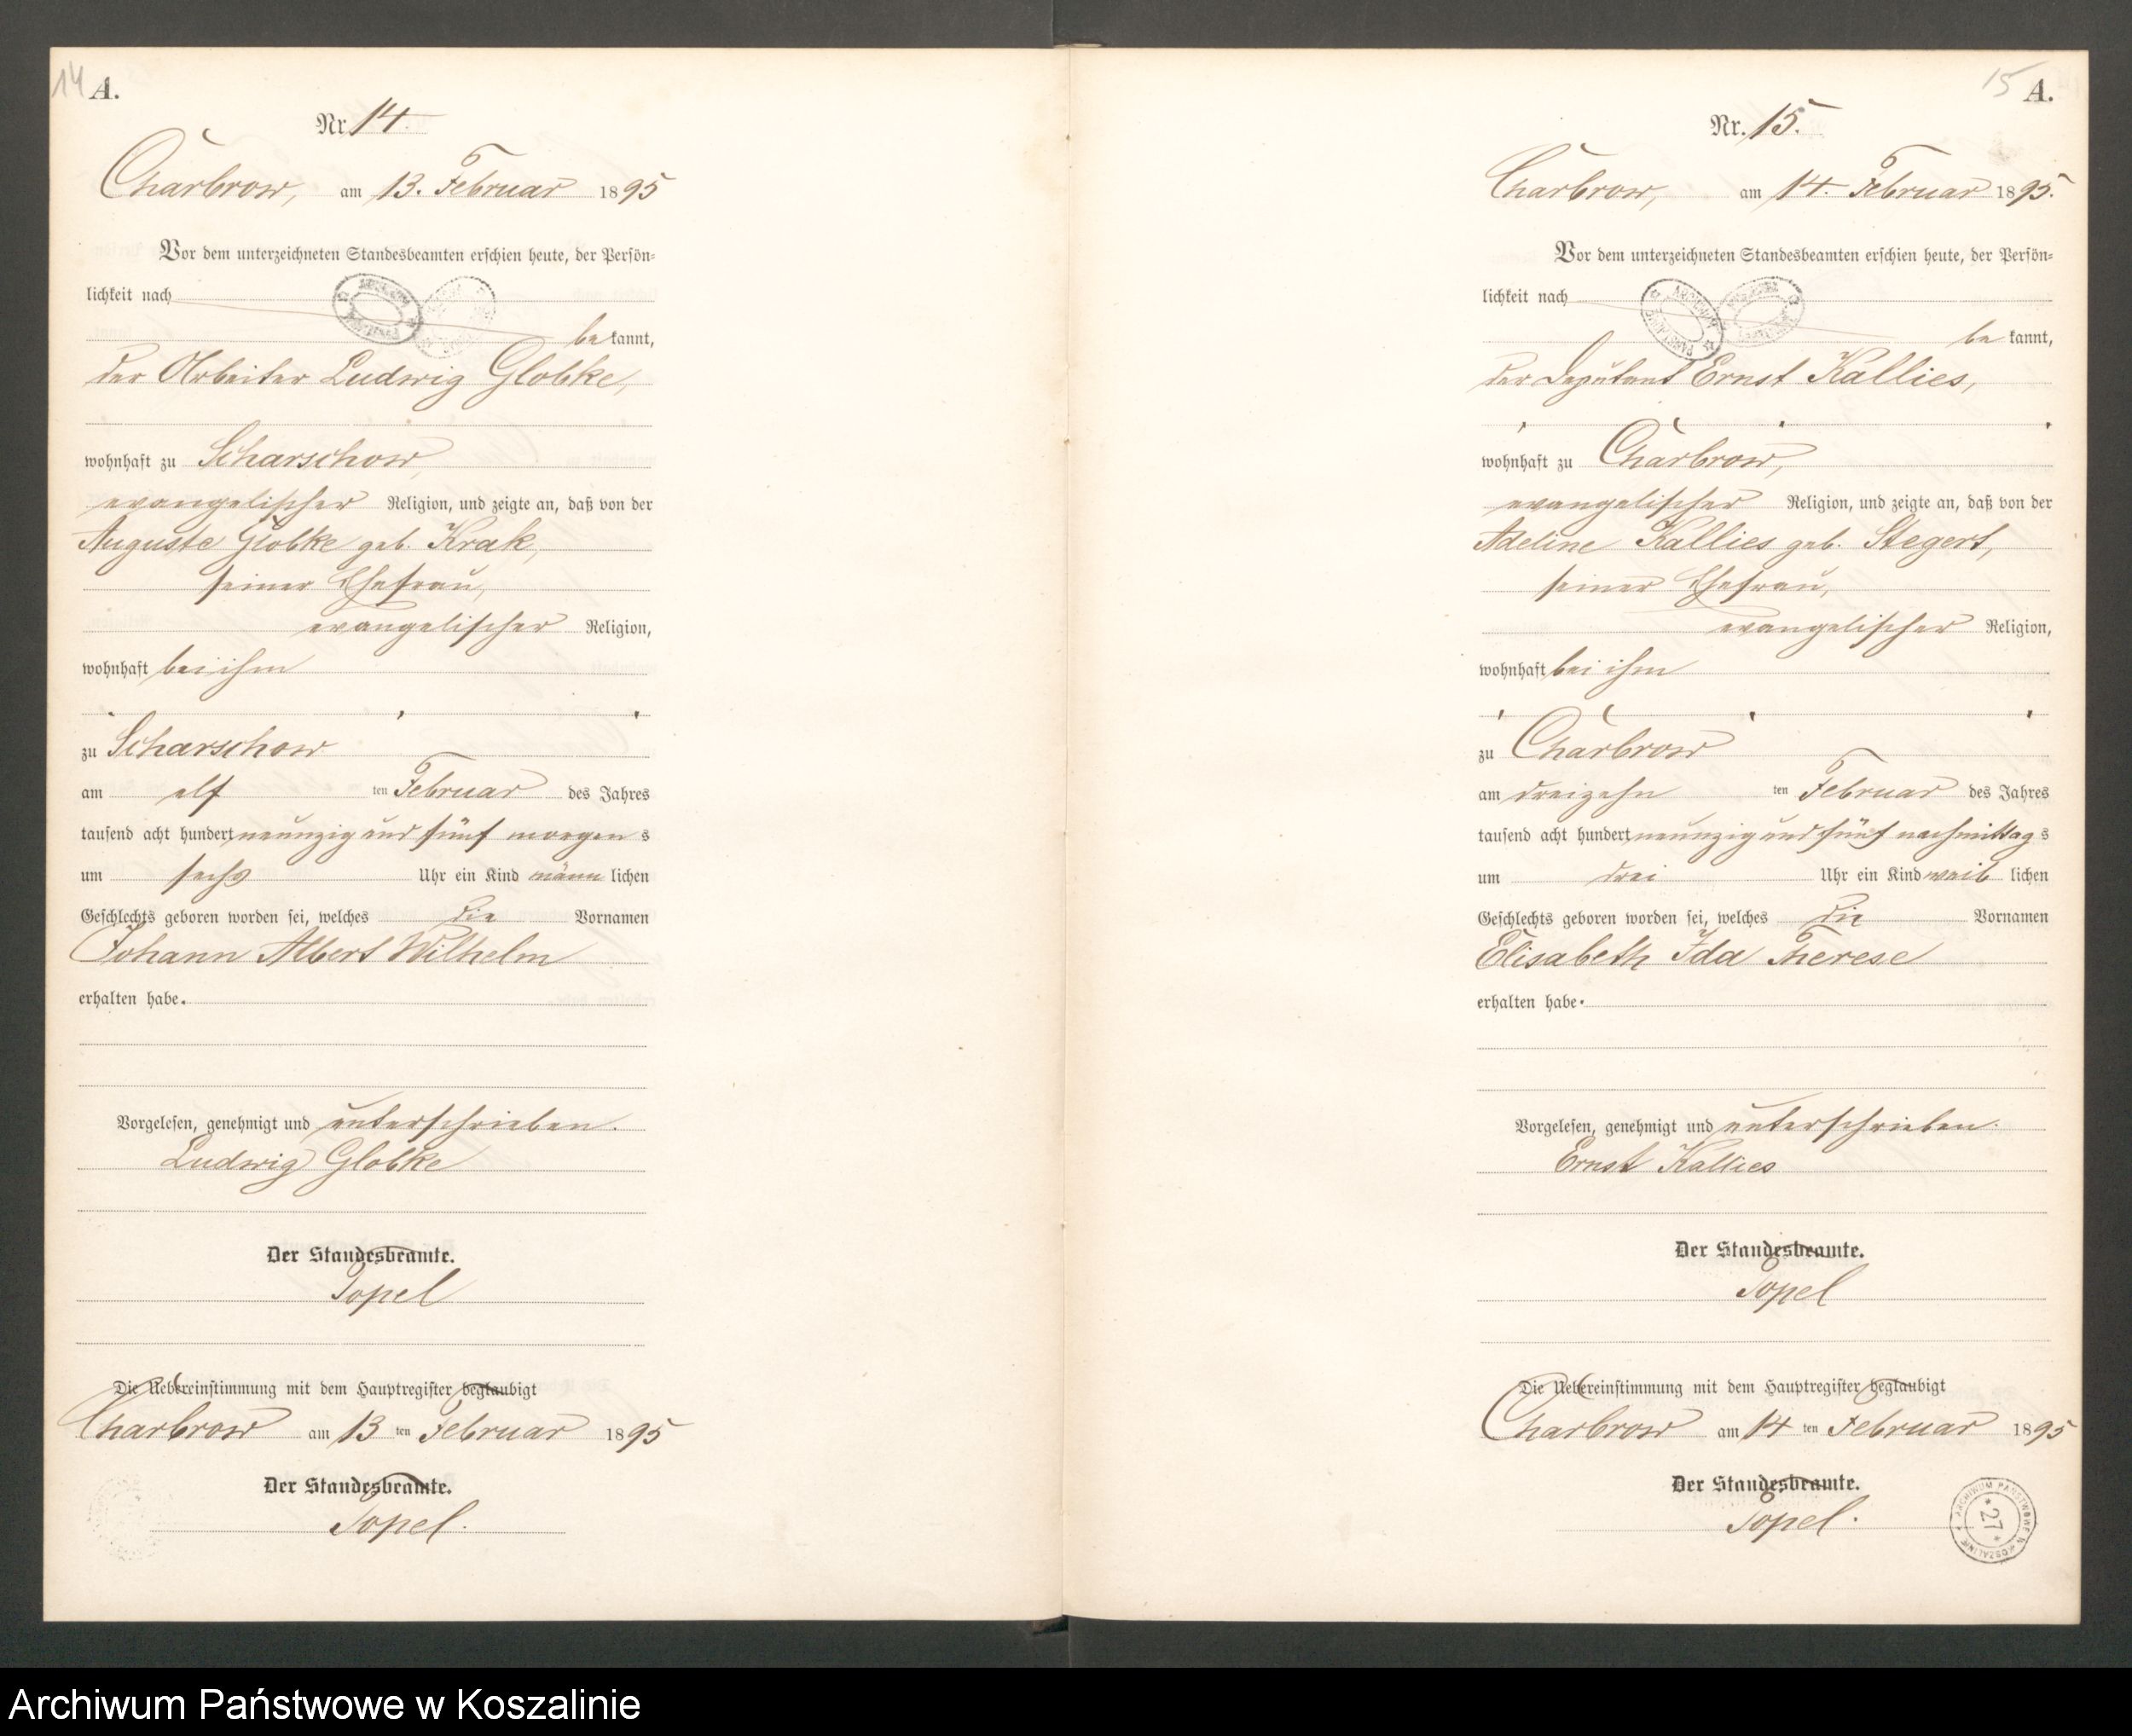 14 A.
Nr. 14.
Charbrow, am 13. Februar 1895
Vor dem unterzeichneten Standesbeamten erschien heute, der Persön-
lichkeit nach
be kannt,
der Arbeiter Ludwig Globke,
wohnhaft zu Scharschow,
evangelischer Religion, und zeigte an, daß von der
Auguste Globke geb. Krak,
seiner Ehefrau,
evangelischer Religion,
wohnhaft bei ihm
zu Scharschow
am elf ten Februar des Jahres
tausend acht hundert neunzig und fünf morgen s
um sechs Uhr ein Kind männ lichen
Geschlechts geboren worden sei, welches die Vornamen
Johann Albert Wilhelm
erhalten habe.
Vorgelesen, genehmigt und unterschrieben.
Ludwig Globke
Der Standesbeamte.
Topel
Die Uebereinstimmung mit dem Hauptregister beglaubigt
Charbrow am 13 ten Februar 1895
Der Standesbeamte.
Topel.
15 A.
Nr. 15.
Charbrow, am 14. Februar 1895.
Vor dem unterzeichneten Standesbeamten erschien heute, der Persön-
lichkeit nach
ARCHIWUM PAŃSTWOWE
be kannt,
der Deputant Ernst Kallies,
wohnhaft zu Charbrow,
evangelischer Religion, und zeigte an, daß von der
Adeline Kallies geb. Stegert,
seiner Ehefrau,
evangelischer Religion,
wohnhaft bei ihm
zu Charbrow
am dreizehn ten Februar des Jahres
tausend acht hundert neunzig und fünf nachmittag s
um drei Uhr ein Kind weib lichen
Geschlechts geboren worden sei, welches die Vornamen
Elisabeth Ida Therese
erhalten habe.
Vorgelesen, genehmigt und unterschrieben.
Ernst Kallies
Der Standesbeamte.
Topel
Die Uebereinstimmung mit dem Hauptregister beglaubigt
Charbrow am 14 ten Februar 1895
Der Standesbeamte.
Topel.
ARCHIWUM PAŃSTWOWE W KOSZALINIE
*27*
Archiwum Państwowe w Koszalinie